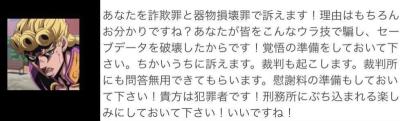 あなたを詐欺罪と器物損壊罪で訴えます！理由はもちろん
お分かりですね？あなたが皆をこんなウラ技で騙し、セー
ブデータを破壊したからです！覚悟の準備をしておいて下
さい。ちかいうちに訴えます。裁判も起こします。裁判所
にも問答無用できてもらいます。慰謝料の準備もしておい
て下さい！貴方は犯罪者です！刑務所にぶち込まれる楽し
みにしておいて下さい！いいですね！